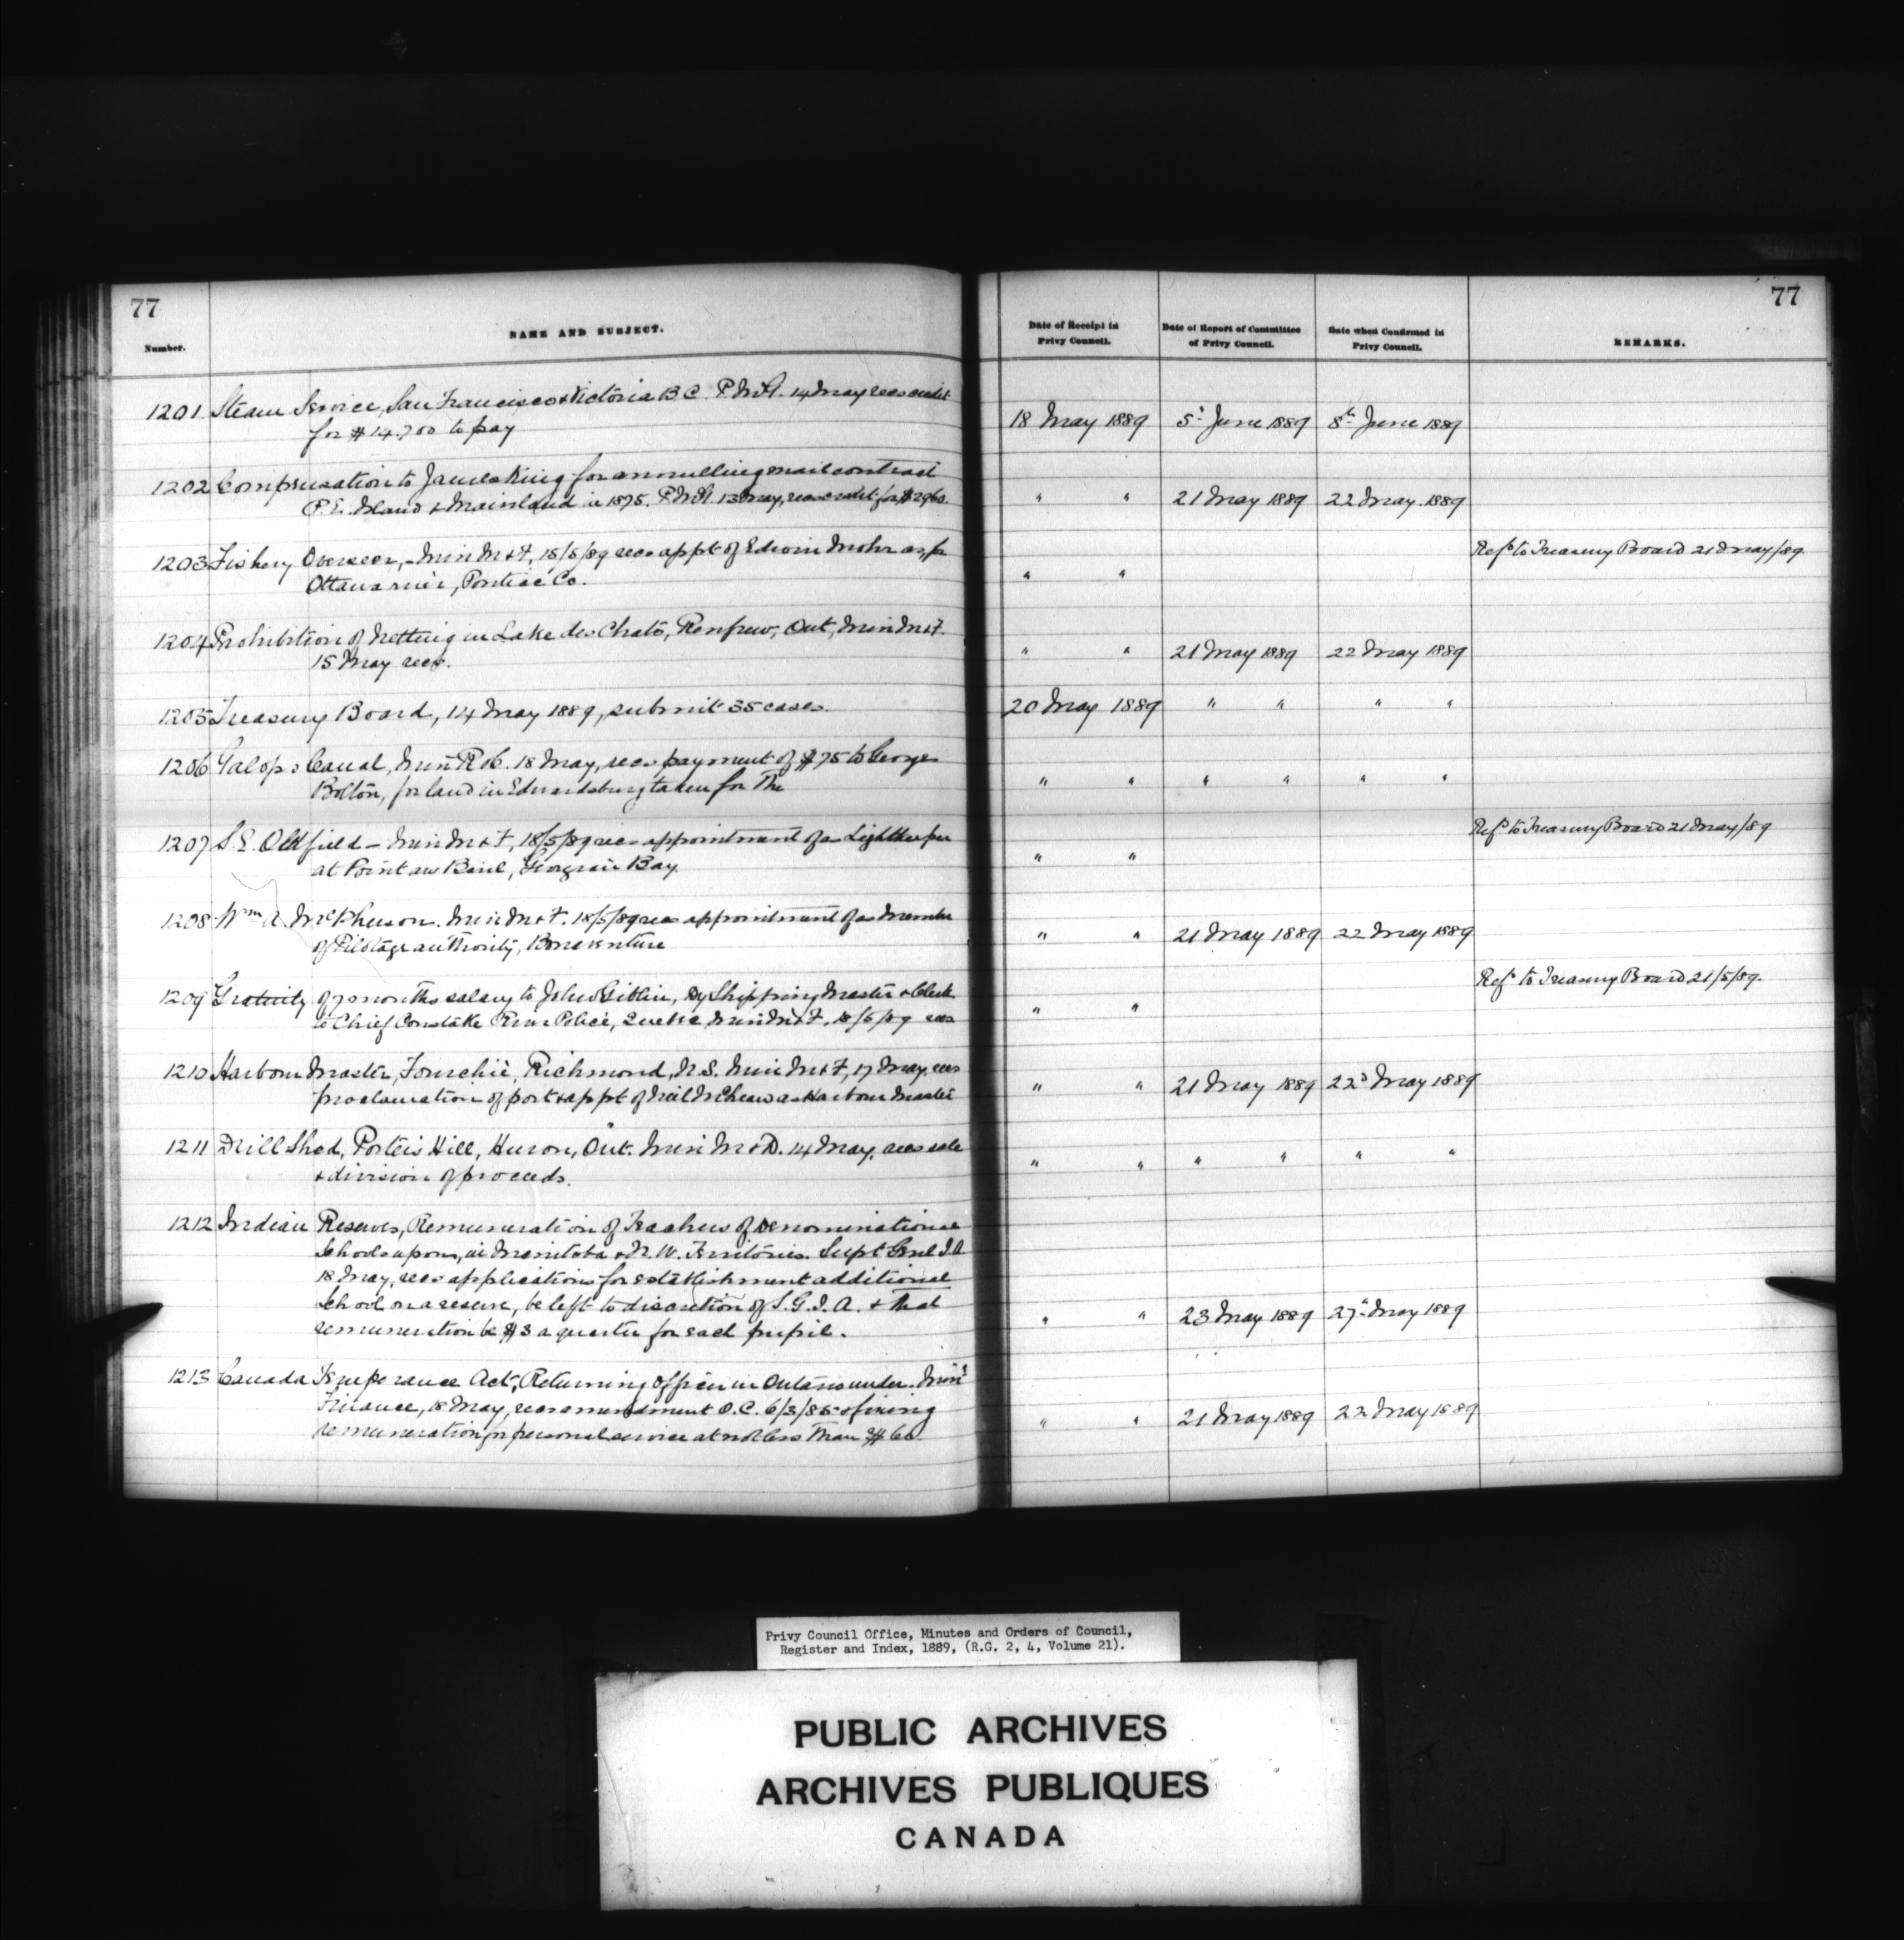 77
77
Number.
NAME AND SUBJECT.
Date of Receipt in Privy Council.
Date of Report of Committee of Privy Council.
Date when Confirmed in Privy Council.
REMARKS.
1201 Steam Service, San Francisco & Victoria B.C. P.M.G. 14 May recs credit
for $14,700 to pay
18 May 1889 5th June 1889 8th June 1889
1202 Compensation to James King for annulling mail contract
P.E. Island & Mainland in 1875. P.M.G. 13 May, recs credit for $2960.
" " 21 May 1889 22 May 1889
1203 Fishery Overseer, Min M & F, 15/5/89 recs appt of Edwin Mohr as, for
Ottawa river, Pontiac Co.
" " Refd to Treasury Board 21 May/89
1204 Prohibition of Netting in Lake des Chats, Renfrew, Ont, Min M & F.
15 May recs.
" " 21 May 1889 22 May 1889
1205 Treasury Board, 14 May 1889, submit 35 cases.
20 May 1889 " " " "
1206 Galops Canal, Min R & C. 18 May, recs payment of $75 to George
Bolton, for land in Edwardsburg taken for the
" " " " " "
1207 S.E. Oldfield - Min M & F, 18/5/89 recs appointment of as Lightkeeper
at Point au Baril, Georgian Bay.
" " Refd to Treasury Board 21 May/89
1208 Wm A. McPherson. Min M & F. 18/5/89 recs appointment of as Member
of Pilotage authority, Bonaventure
" " 21 May 1889 22 May 1889
1209 Gratuity of 7 months salary to John Giblin, Dy Shipping Master & Clerk
to Chief Constable River Police, Quebec Min M & F. 18/5/89 recs
" " Refd to Treasury Board 21/5/89.
1210 Harbour Master, Fourchie, Richmond, N.S. Min M & F, 17 May, recs
proclamation of port & appt of Neil McLean as Harbour Master
" " 21 May 1889 22d May 1889
1211 Drill Shed, Porters Hill, Huron, Ont. Min M & D. 14 May, recs sale
& division of proceeds.
" " " " " "
1212 Indian Reserves, Remuneration of Teachers of Denominational
Schools upon, in Manitoba & N.W. Territories. Supt Genl I.A
18 May, recs applications for establishment additional
School on a reserve, be left to discretion of S.G.I.A. & that
remuneration be $3 a quarter for each pupil.
" " 23 May 1889 27th May 1889
1213 Canada Temperance Act, Returning officer in Ontario under. Minr
Finance, 18 May, recs amendment O.C. 6/3/85 & fixing
remuneration for personal service at not less than $60.
" " 21 May 1889 22 May 1889
Privy Council Office, Minutes and Orders of Council,
Register and Index, 1889, (R.G. 2, 4, Volume 21).
PUBLIC ARCHIVES
ARCHIVES PUBLIQUES
CANADA